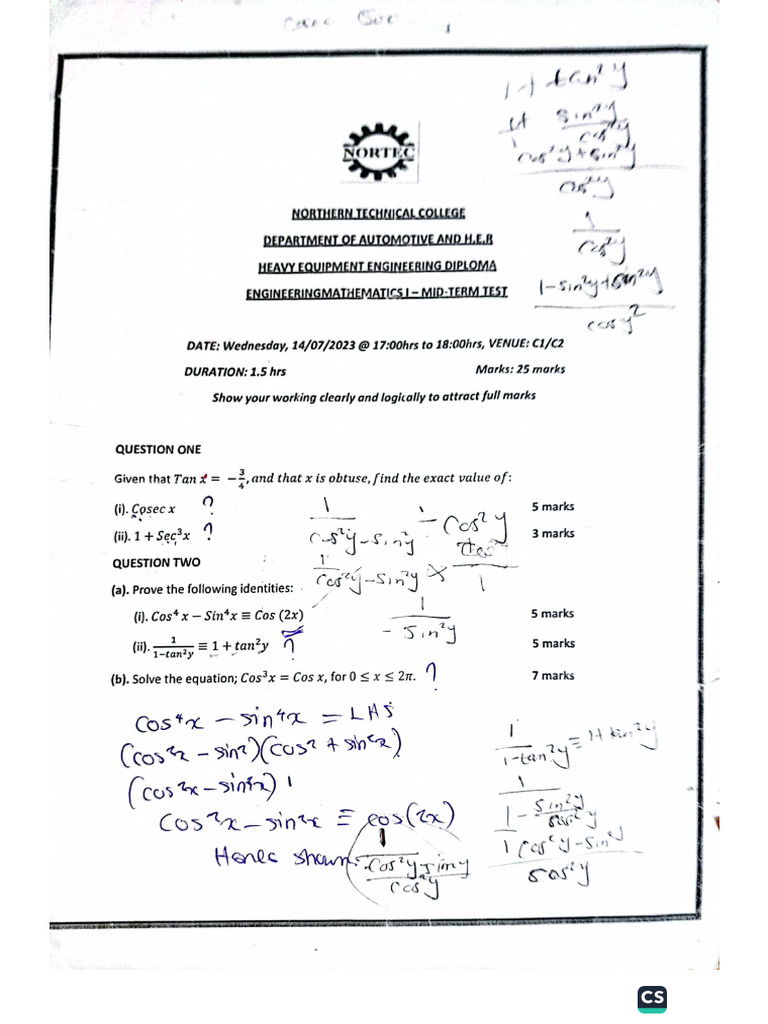 Cosec Sec
1 + tan²y
1+ sin²y
cos²y
cos²y + sin²y
cos²y
1
cos²y
1-sin²y+sin²y
cosy²
NORTEC
NORTHERN TECHNICAL COLLEGE
DEPARTMENT OF AUTOMOTIVE AND H.E.R
HEAVY EQUIPMENT ENGINEERING DIPLOMA
ENGINEERINGMATHEMATICS I – MID-TERM TEST
DATE: Wednesday, 14/07/2023 @ 17:00hrs to 18:00hrs, VENUE: C1/C2
DURATION: 1.5 hrs Marks: 25 marks
Show your working clearly and logically to attract full marks
QUESTION ONE
Given that Tan x = −3/4, and that x is obtuse, find the exact value of:
(i). Cosec x ? 5 marks
(ii). 1 + Sec³x ? 3 marks
1
cos²y-sin²y
÷ cos²y
1
cos²y-sin²y × 1
1
- sin²y
QUESTION TWO
(a). Prove the following identities:
(i). Cos⁴ x − Sin⁴x ≡ Cos (2x) 5 marks
(ii). 1/1−tan²y ≡ 1 + tan²y ? 5 marks
(b). Solve the equation; Cos³x = Cos x, for 0 ≤ x ≤ 2π. ? 7 marks
cos⁴x − sin⁴x = LHS
(cos²x − sin²)(cos² + sin²x)
(cos²x − sin²x) 1
cos²x − sin²x ≡ cos(2x)
Hence shown.
1
cos²y-sin²y
cos²y
1
1-tan²y ≡ 1+tan²y
1
1 - sin²y
cos²y
1 cos²y-sin²y
cos²y
CS